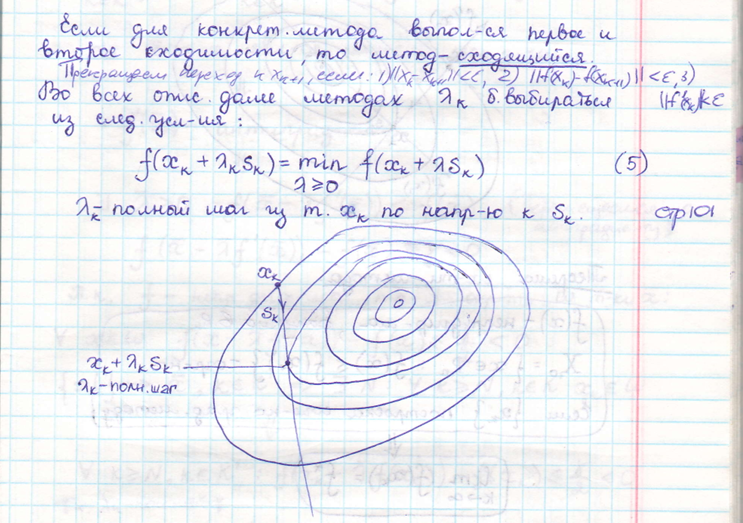 Если для конкрет. метода выпол-ся первое и
второе сходимости, то метод - сходящийся.
Прекращаем переход к x_{k+1}, если: 1) ||x_k - x_{k+1}|| < ε, 2) ||f(x_k) - f(x_{k+1})|| < ε, 3)
||f'(x_k)|| < ε
Во всех опис. далее методах λ_k б. выбираться
из след. усл-ия:
f(x_k + λ_k s_k) = min f(x_k + λ s_k) (5)
λ ≥ 0
λ_k - полный шаг из т. x_k по напр-ю к s_k. стр 101
x_k
s_k
x_k + λ_k s_k
λ_k - полн. шаг